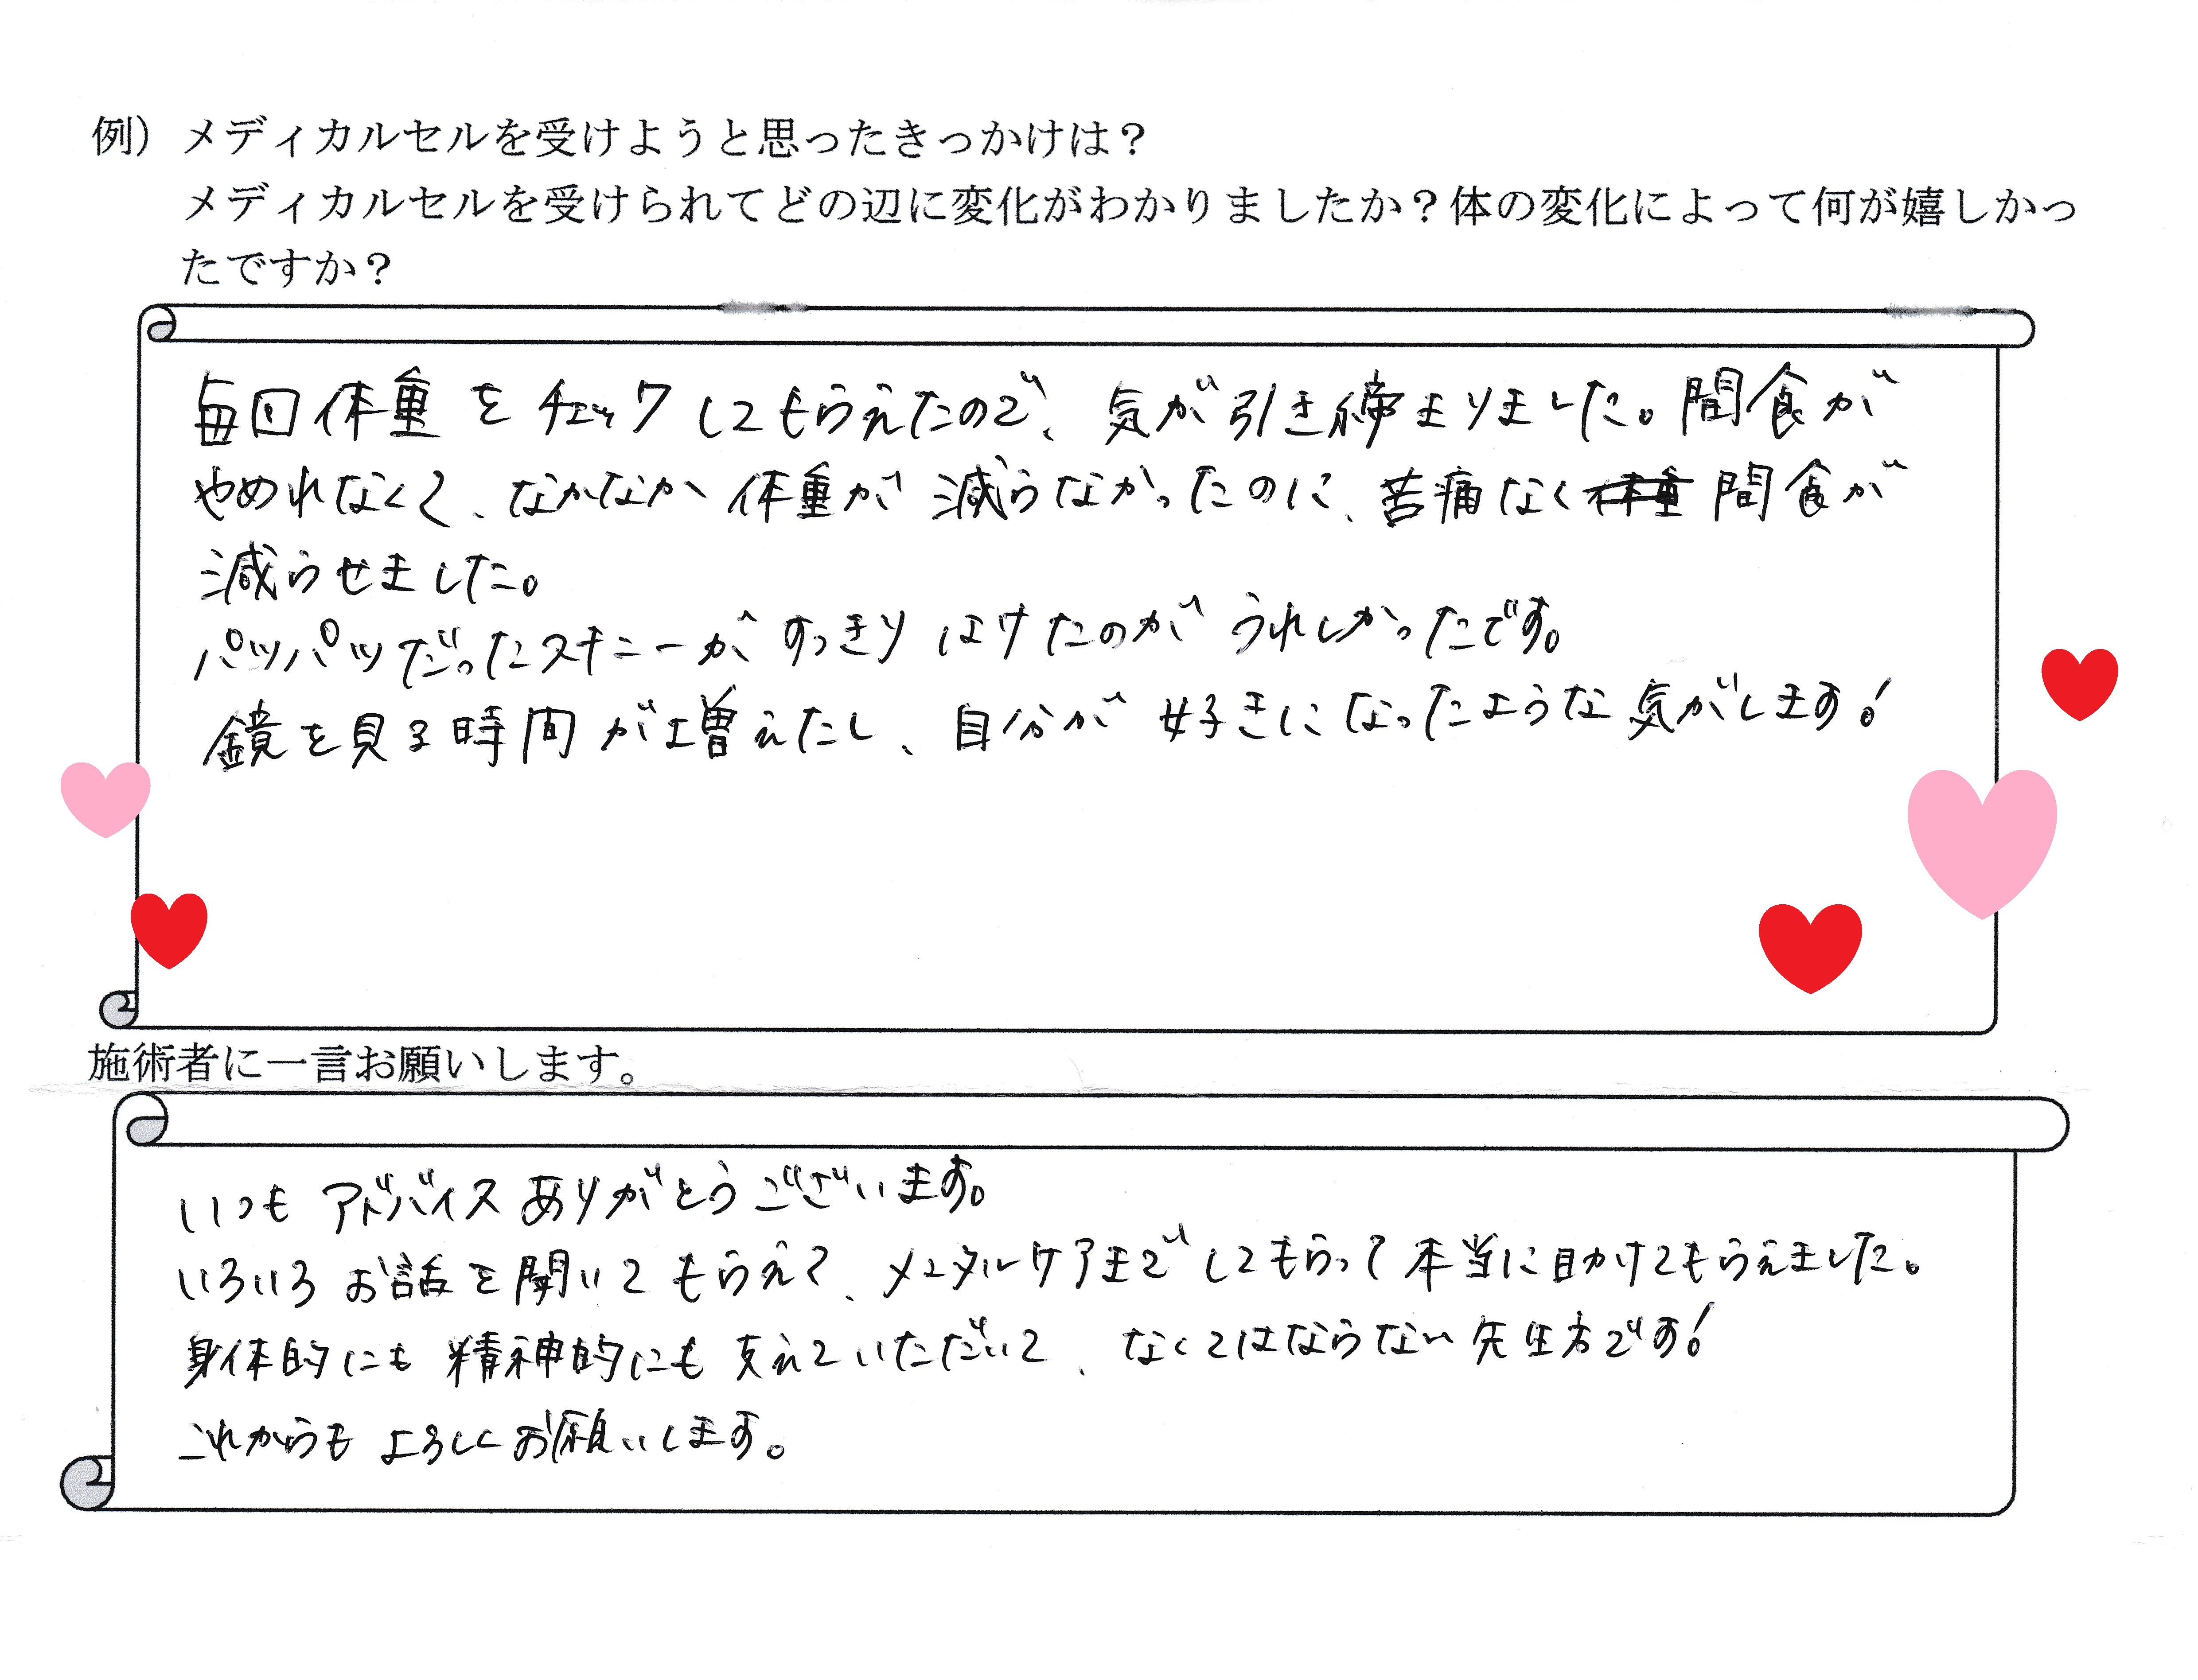 例）メディカルセルを受けようと思ったきっかけは？
メディカルセルを受けられてどの辺に変化がわかりましたか？体の変化によって何が嬉しかっ
たですか？
毎回体重をチェックしてもらえたので、気が引き締まりました。間食が
やめれなくて、なかなか体重が減らなかったのに、苦痛なく体重間食が
減らせました。
パツパツだったスキニーがすっきりはけたのがうれしかったです。
鏡を見る時間が増えたし、自分が好きになったような気がします！
施術者に一言お願いします。
いつもアドバイスありがとうございます。
いろいろお話を聞いてもらえて、メンタルケアまでしてもらって本当に助けてもらえました。
身体的にも精神的にも支えていただいて、なくてはならない先生方です！
これからもよろしくお願いします。